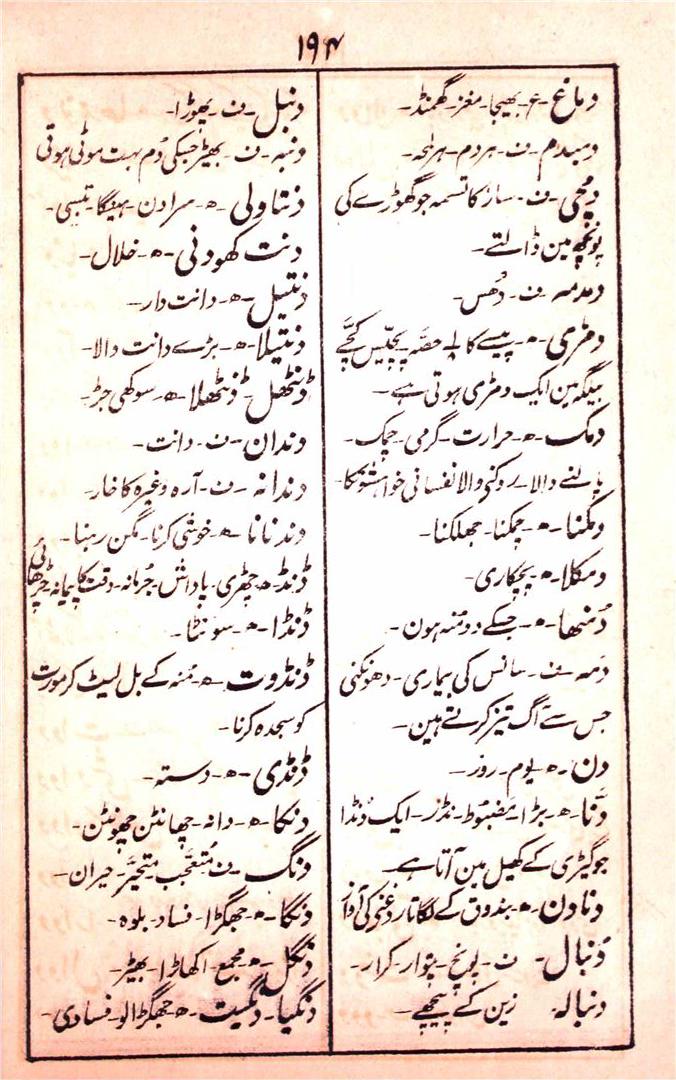 ۱۹۴
دماغ - ع - بھیجا - مغز - گھمنڈ -
دمبدم - ف - ہردم - ہر لحہ -
دمچی - ف - ساز کا تسمہ جو گھوڑے کی
پونچھ مین ڈالتے -
دمدمہ - ف - دُھس -
دمڑی - ھ - پیسے کا حصّہ پچیّس کچّے
بیگہ مین ایک دمڑی ہوتی ہے -
دمک - ھ - حرارت - گرمی - چمک -
والا روکنے والا نفسانی خواہشونکا -
دمکنا - ھ - چمکنا - جھلکنا -
دمکلا - ھ - پچکاری -
دُمنھا - ھ - جسکے دو مُنہ ہون -
دَمہ - ف - سانس کی بیماری - دھونکنی
جس سے آگ تیز کرتے ہین -
دن - ھ - یوم - روز -
دَنّا - ھ - بڑا - مضبُوط - نڈر - ایک ڈنڈا
جو گیڑی کے کھیل مین آتا ہے -
دنادن - ھ - بندوق کے لگاتار دغنے کی آواز
دُنبال - ف - پونچھ - پتوار - کرار -
دنبالہ - زین کے پیچھے -
دنبل - ف - پھوڑا -
دنبہ - ف - بھیڑ جسکی دُم بہت موٹی ہوتی
دنتاولی - ھ - سرادن - ہینگا - بتیسی -
دنت کھودنی - ھ - خلال -
دنتیل - ھ - دانت دار -
دنتیلا - ھ - بڑے دانت والا -
ڈنٹھل - ڈنٹھلا - ھ - سوکھی جڑ -
دندان - ف - دانت -
دندانہ - ف - آرہ وغیرہ کا خار -
دندنانا - ھ - خوشی کرنا - مگن رہنا -
ڈنڈ - ھ - چھڑی - پاداش - جُرمانہ - وقت کا پیمانہ - چڑھائی
ڈنڈا - ھ - سونٹا -
ڈنڈوت - ھ - مُنہ کے بل لیٹ کر مورت
کو سجدہ کرنا -
ڈنڈی - ھ - دستہ -
دنکا - ھ - دانہ - چھانٹن چھونٹن -
دنگ - ف - مُتعجّب - متحیّر - حیران -
دنگا - ھ - جھگڑا - فساد - بلوہ -
دنگل - ھ - مجمع - اکھاڑا - بھیڑ -
دنگیا - دنگیت - ھ - جھگڑالو - فسادی -